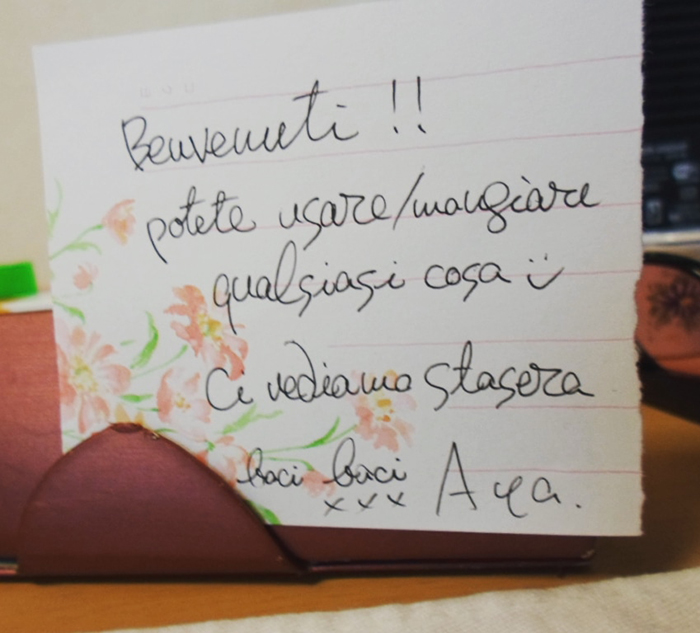 Benvenuti !!
potete usare/mangiare
qualsiasi cosa :)
Ci vediamo stasera
baci baci
xxx Aya.